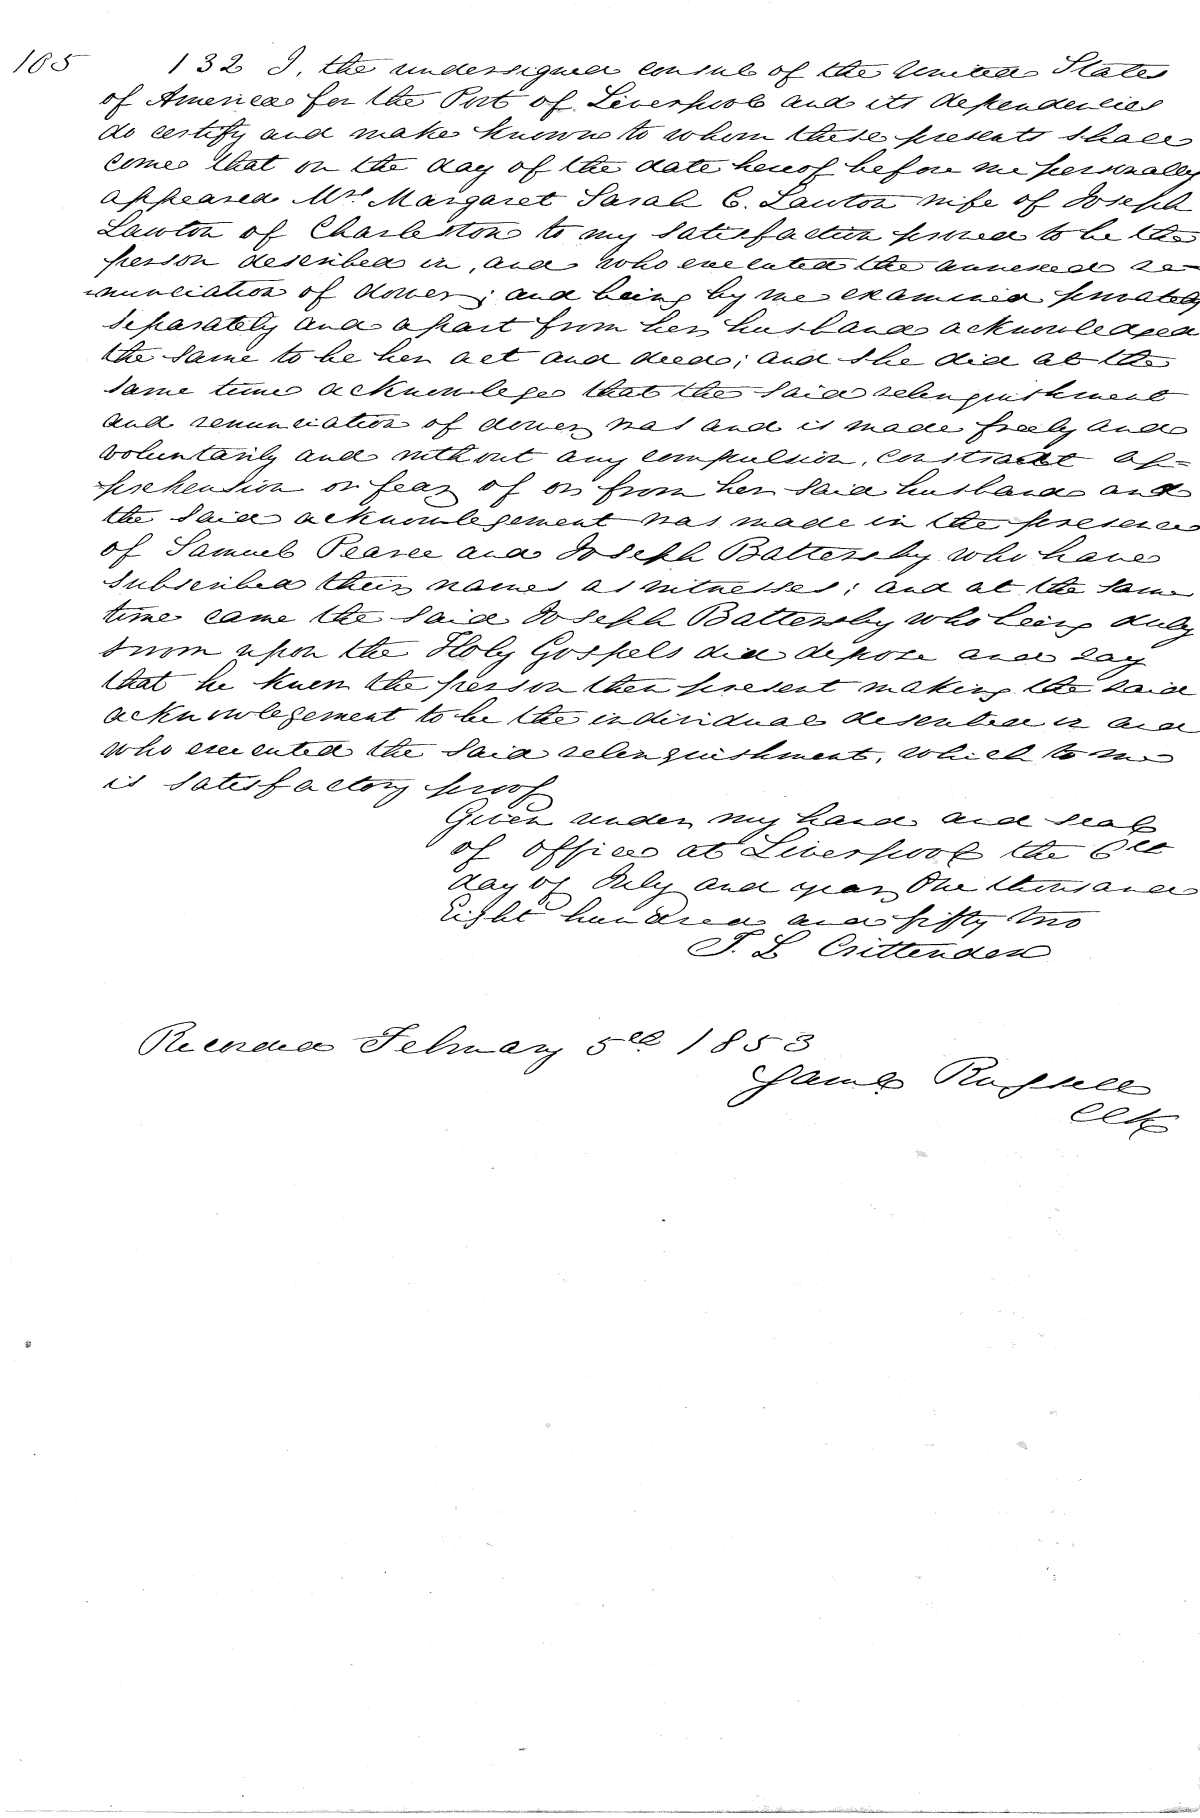 165 132 I, the undersigned consul of the United States
of America for the Port of Liverpool and its dependencies
do certify and make known to whom these presents shall
come that on the day of the date hereof before me personally
appeared Mrs. Margaret Sarah C. Lawton wife of Joseph
Lawton of Charleston to my satisfaction proved to be the
person described in, and who executed the annexed re-
nunciation of dower; and being by me examined privately
separately and apart from her husband acknowledged
the same to be her act and deed; and she did at the
same time acknowlege that the said relinquishment
and renunciation of dower was and is made freely and
voluntarily and without any compulsion, constraint ap-
prehension or fear of or from her said husband and
the said acknowlegement was made in the presence
of Samuel Pearce and Joseph Battersby who have
subscribed their names as witnesses; and at the same
time came the said Joseph Battersby who being duly
sworn upon the Holy Gospels did depose and say
that he knew the person then present making the said
acknowlegement to be the individual described in and
who executed the said relinquishment, which to me
is satisfactory proof
Given under my hand and seal
of office at Liverpool the 6th
day of July and year One thousand
Eight hundred and fifty two
T. L Crittenden
Recorded February 5th 1853
James Russell
Clk